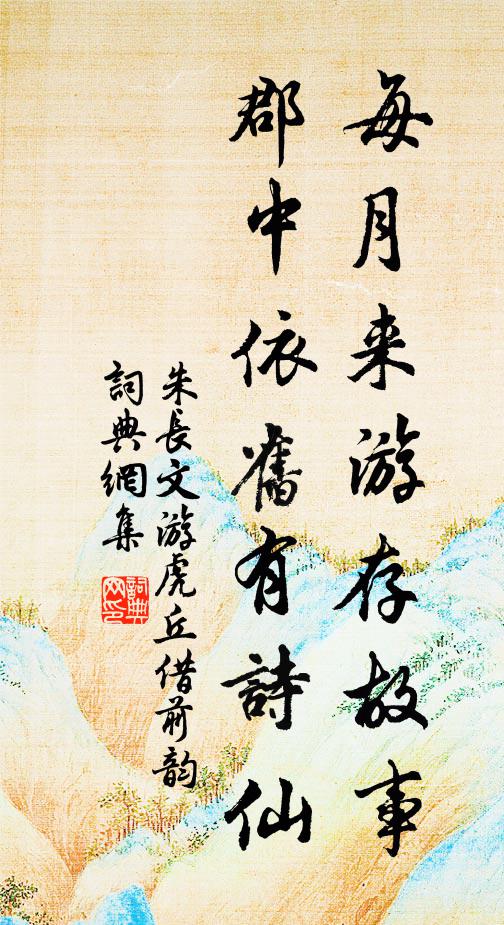 每月来游存故事
郡中依舊有詩仙
朱長文游虎丘借前韵
詞典網集
詞典